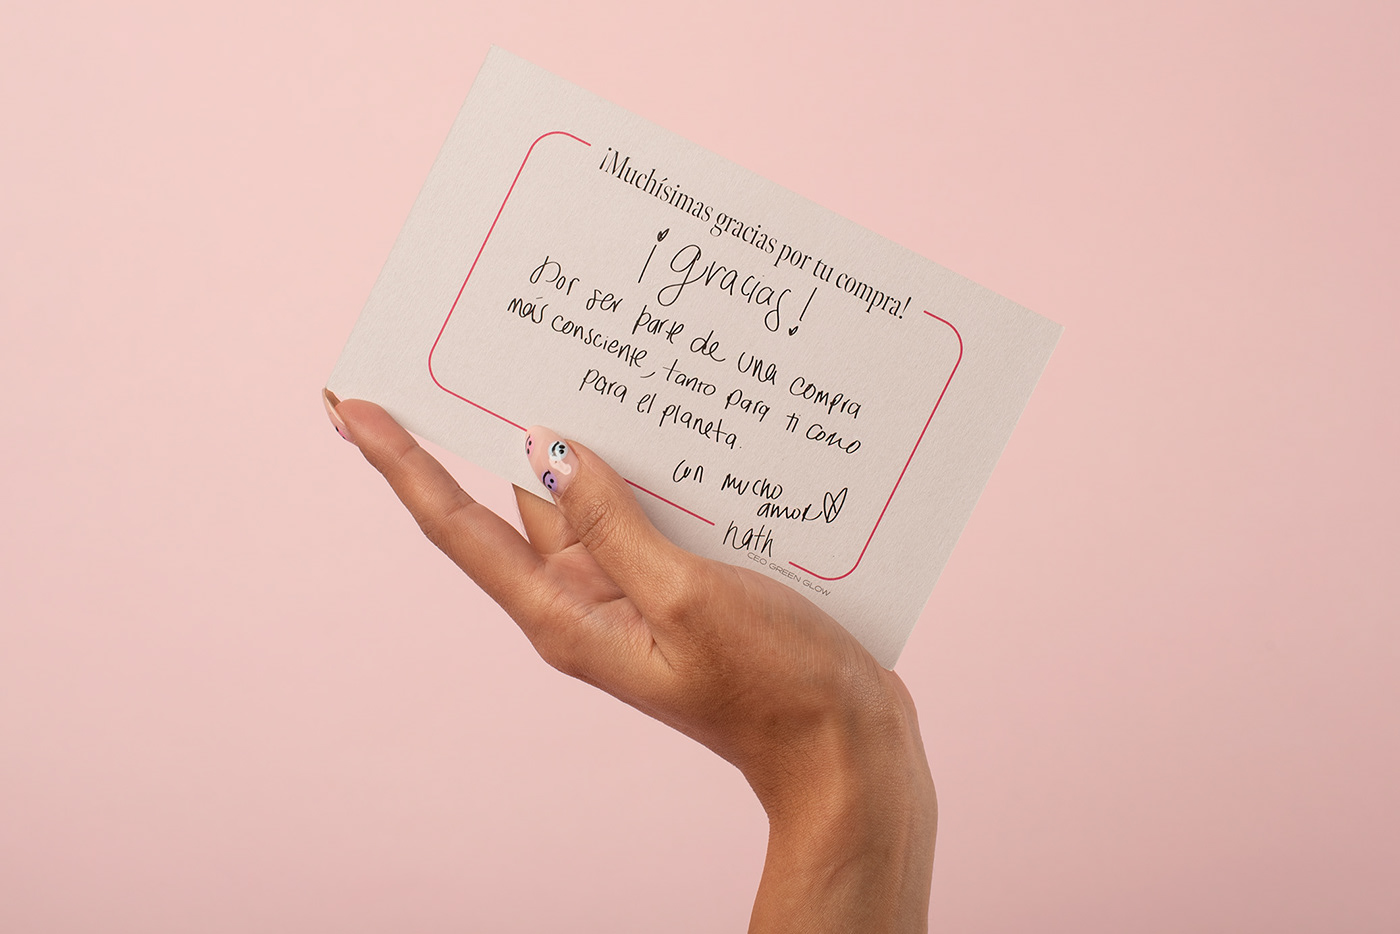 ¡Muchísimas gracias por tu compra!
¡gracias!
Por ser parte de una compra
más consciente, tanto para ti como
para el planeta.
con mucho
amor
nath
CEO GREEN GLOW